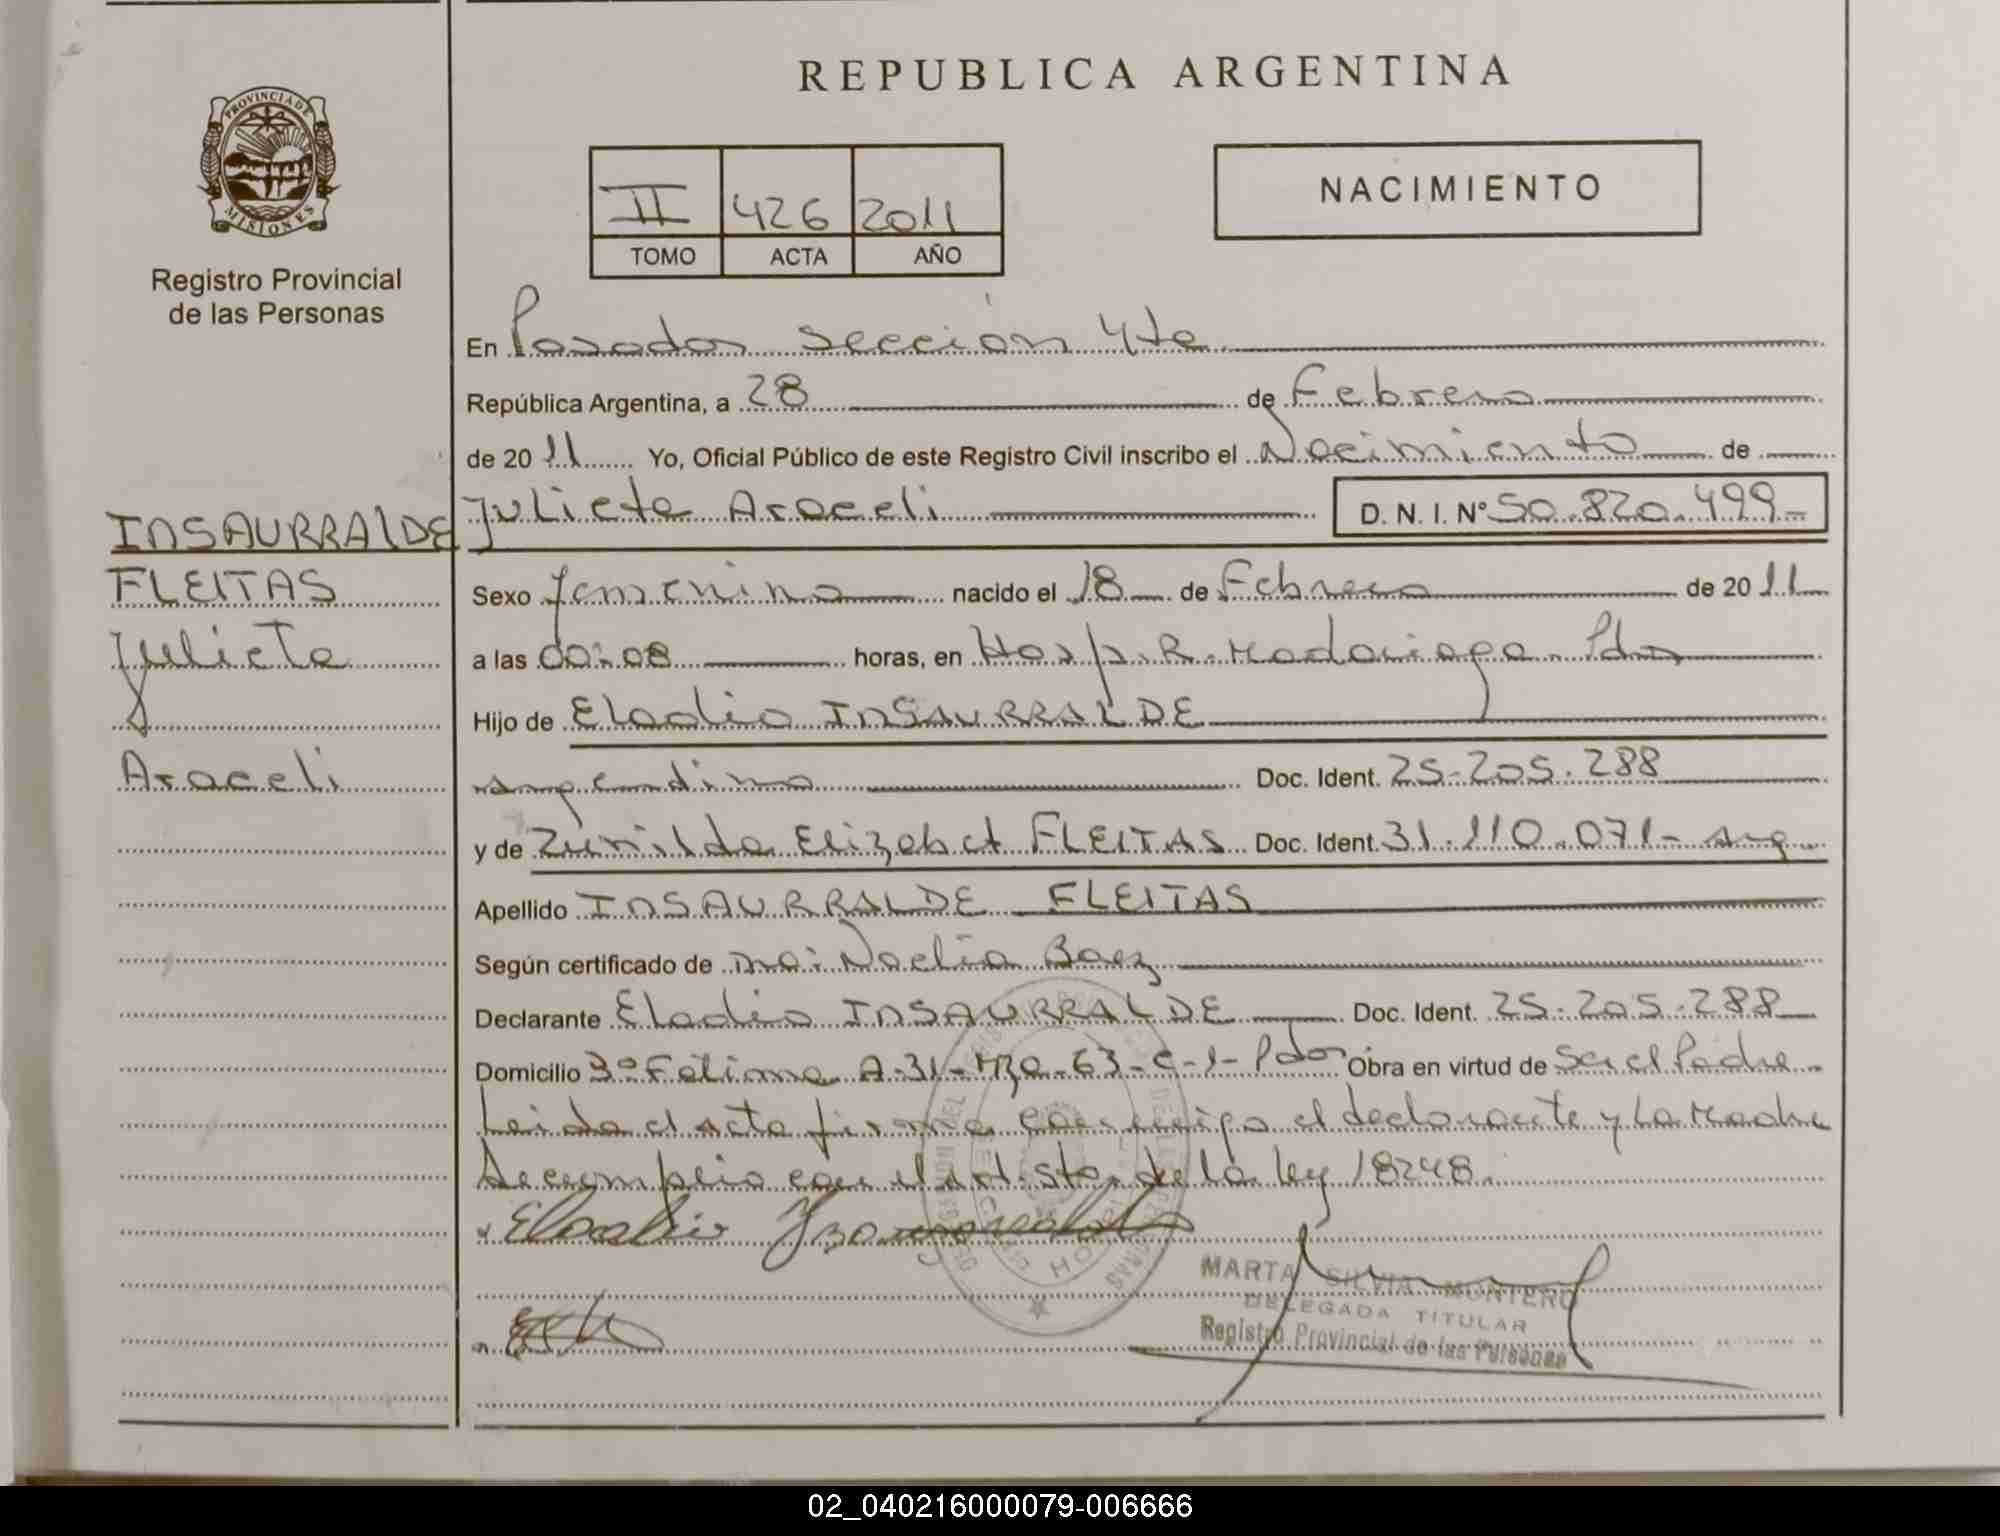 REPUBLICA ARGENTINA
PROVINCIA DE
MISIONES
Registro Provincial
de las Personas
II 426 2011
TOMO ACTA AÑO
NACIMIENTO
En Posadas sección 4ta
República Argentina, a 28 de Febrero
de 2011 Yo, Oficial Público de este Registro Civil inscribo el Nacimiento de
Julieta Araceli D. N. I. N° 50.820.499-
INSAURRALDE
FLEITAS
Julieta
Araceli
Sexo femenino nacido el 18 de Febrero de 2011
a las 00:08 horas, en Hosp. R. Madariaga - Pdas
Hijo de Eladio INSAURRALDE
argentino Doc. Ident. 25.205.288
y de Zunilda Elizabet FLEITAS Doc. Ident. 31.110.071- arg
Apellido INSAURRALDE FLEITAS
Según certificado de Noelia Baez
Declarante Eladio INSAURRALDE Doc. Ident. 25.205.288
Domicilio Bº Fátima A-31-Mza-63-C-1-Pdas Obra en virtud de Ser el Padre
Leida el acta firma conmigo el declarante y La Madre
Se cumplio con el art. 5to. de la ley 18248.
Eladio
MARTA SILVIA MONTERO
DELEGADA TITULAR
Registro Provincial de las Personas
02_040216000079-006666